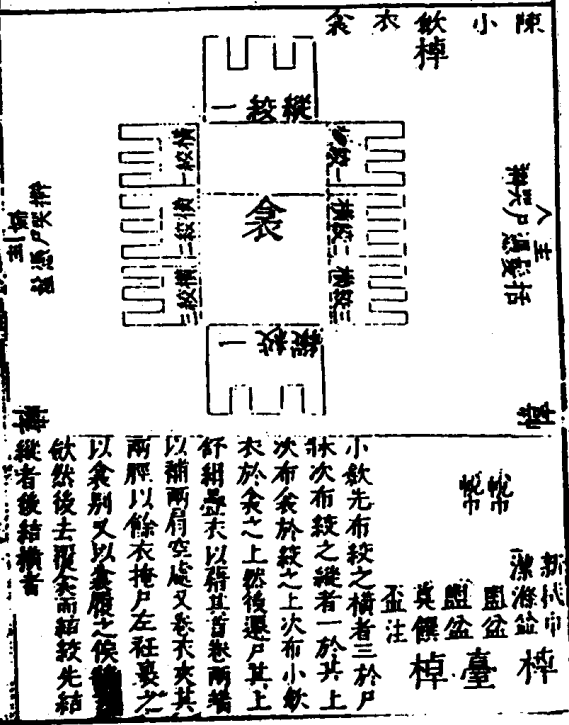 陳小斂衣衾
棹
縱絞一
橫絞一
橫絞二
橫絞三
橫絞一
橫絞二
橫絞三
衾
縱絞一
主人
括髮憑尸哭擗
主婦
憑尸哭擗
帨巾
帨巾
新拭巾
潔滌盆
盥盆
盥盆
奠饌
盃注
棹
臺
棹
小斂先布絞之橫者三於尸
牀次布絞之縱者一於其上
次布衾於絞之上次布小斂
衣於衾之上然後遷尸其上
舒絹疊衣以藉其首卷兩端
以補兩肩空處又卷衣夾其
兩脛以餘衣掩尸左衽裹之
以衾別又以衾覆之俟
斂然後去覆衾而結絞先結
縱者後結橫者